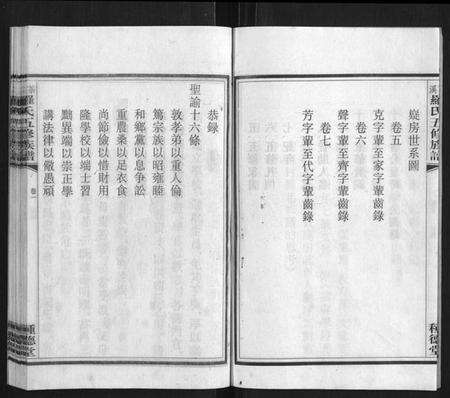 羅氏五修族譜
種德堂
房世系圖
卷五
克字輩至家字輩齒錄
卷六
聲字輩至齊字輩齒錄
卷七
芳字輩至代字輩齒錄
恭錄
聖諭十六條
敦孝弟以重人倫
篤宗族以昭雍睦
和鄉黨以息爭訟
重農桑以足衣食
尚節儉以惜財用
隆學校以端士習
黜異端以崇正學
講法律以儆愚頑
羅氏五修族譜
卷一
種德堂